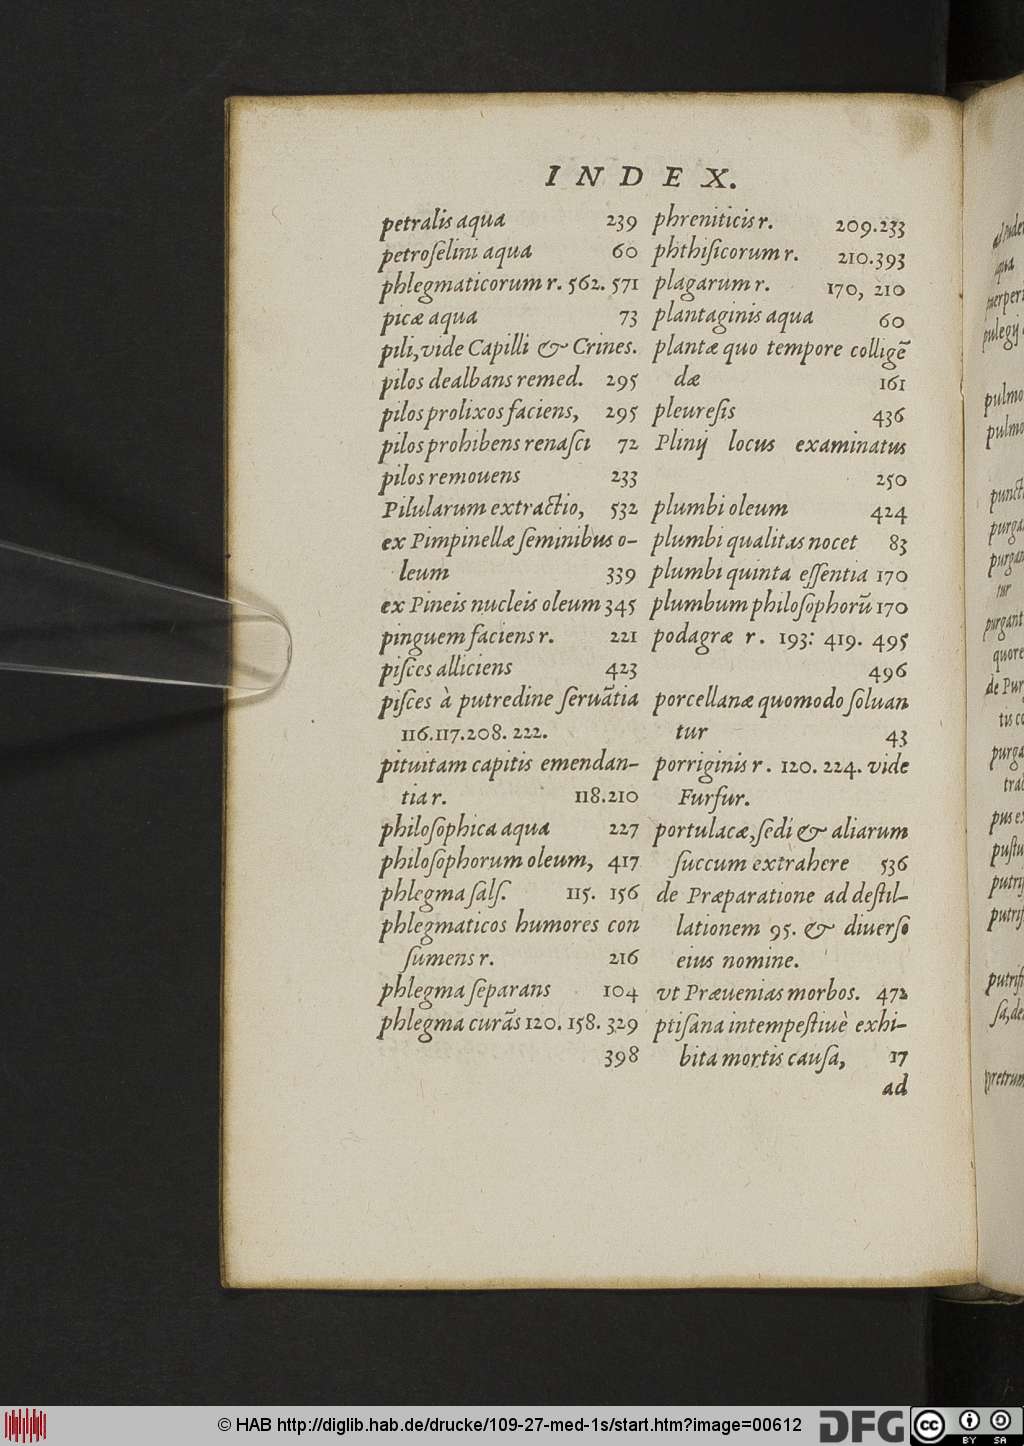 INDEX.
petralis aqua 239
petroſelini aqua 60
phlegmaticorum r. 562. 571
picæ aqua 73
pili, vide Capilli & Crines.
pilos dealbans remed. 295
pilos prolixos faciens, 295
pilos prohibens renaſci 72
pilos remouens 233
Pilularum extractio, 532
ex Pimpinellæ ſeminibus o-
leum 339
ex Pineis nucleis oleum 345
pinguem faciens r. 221
piſces alliciens 423
piſces à putredine ſeruãtia
116.117.208. 222.
pituitam capitis emendan-
tia r. 118.210
philoſophica aqua 227
philoſophorum oleum, 417
phlegma ſalſ. 115. 156
phlegmaticos humores con
ſumens r. 216
phlegma ſeparans 104
phlegma curãs 120. 158. 329
398
phreniticis r. 209.233
phthiſicorum r. 210.393
plagarum r. 170, 210
plantaginis aqua 60
plantæ quo tempore colligẽ
dæ 161
pleureſis 436
Plinij locus examinatus
250
plumbi oleum 424
plumbi qualitas nocet 83
plumbi quinta eſſentia 170
plumbum philoſophorũ 170
podagræ r. 193: 419. 495
496
porcellanæ quomodo ſoluan
tur 43
porriginis r. 120. 224. vide
Furfur.
portulacæ, ſedi & aliarum
ſuccum extrahere 536
de Præparatione ad deſtil-
lationem 95. & diuerſo
eius nomine.
vt Præuenias morbos. 472
ptiſana intempeſtiuè exhi-
bita mortis cauſa, 17
ad
aqua
pulegij
pulmo
pulmo
tur
quore
de Pur
© HAB http://diglib.hab.de/drucke/109-27-med-1s/start.htm?image=00612
DFG
cc
BY SA